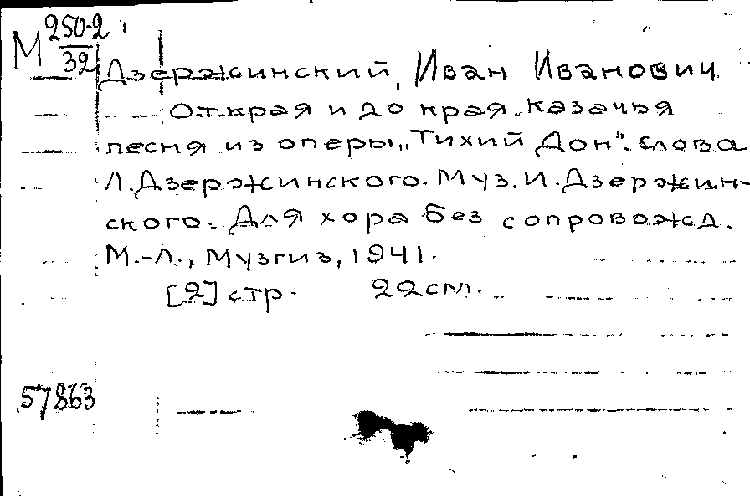 М 250-2
32
Дзержинский, Иван Иванович.
От края и до края. Казачья
песня из оперы „Тихий Дон". Слова
Л. Дзержинского. Муз. И. Дзержин-
ского. Для хора без сопровожд.
М.-Л., Музгиз, 1941.
[2] стр. 22 см.
57863